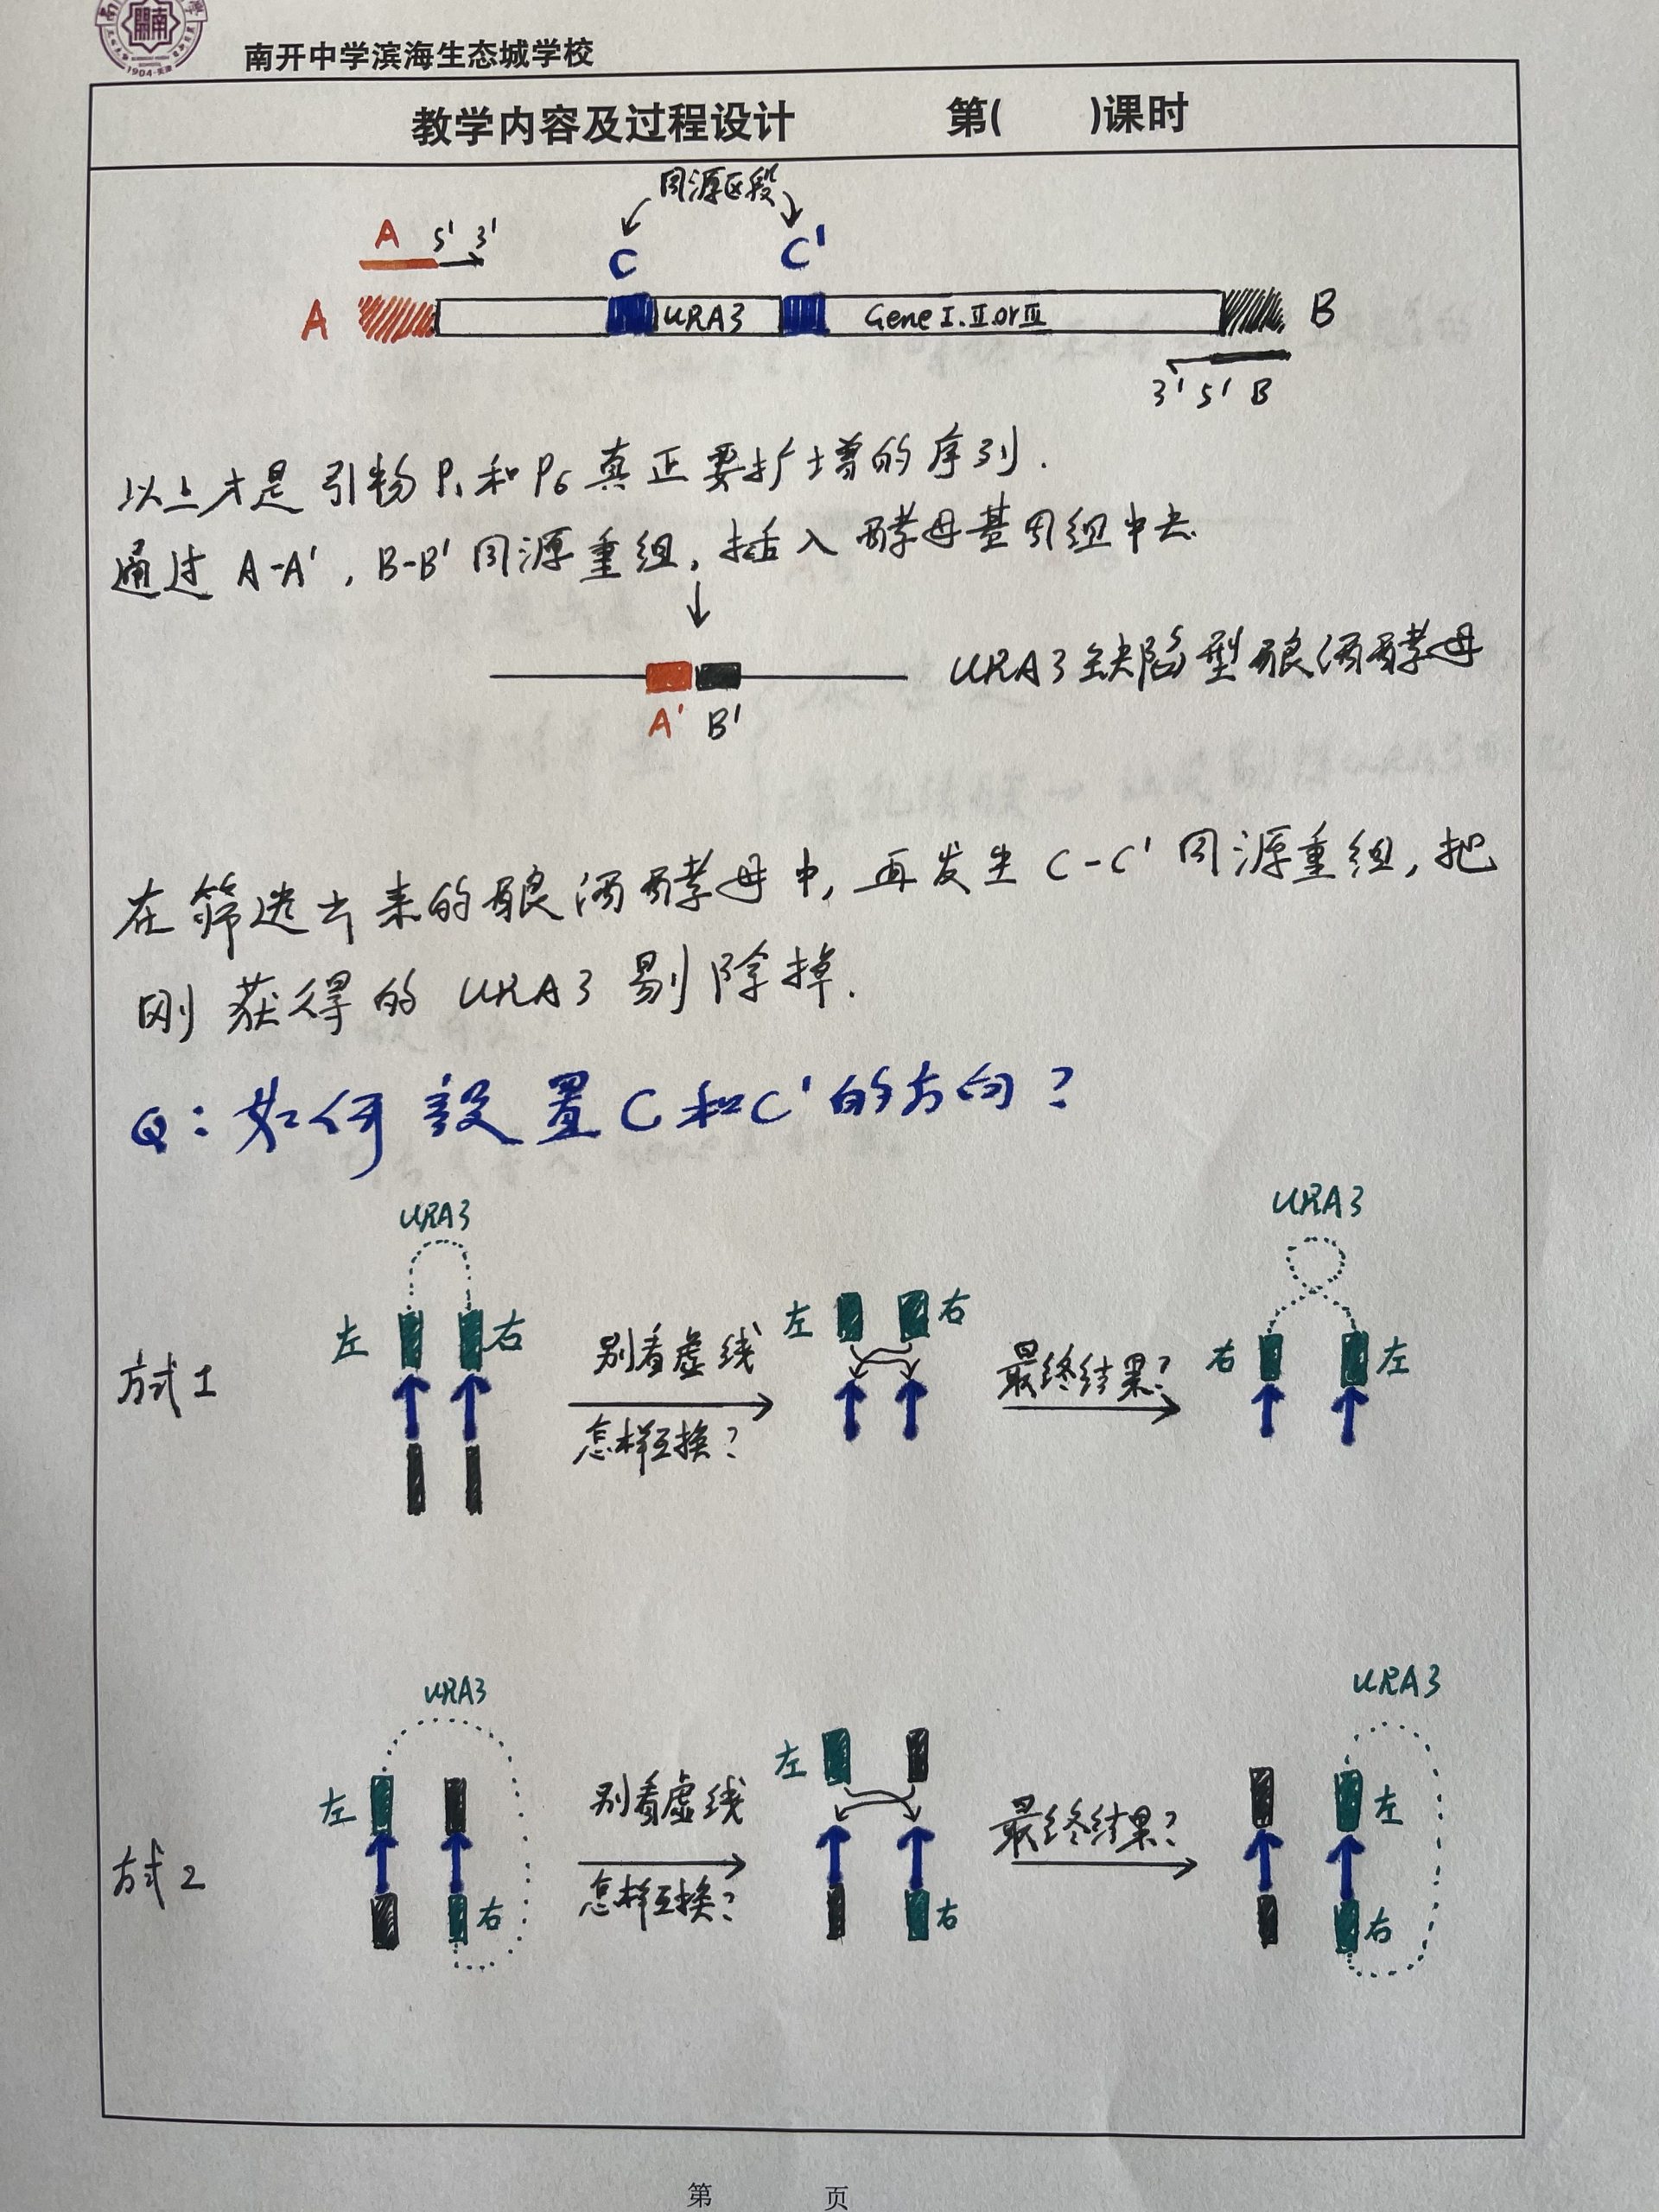 1904·天津
南开中学滨海生态城学校
教学内容及过程设计 第( )课时
同源区段
A 5' 3' C C'
A URA3 Gene I.II.or III B
3' 5' B
以上才是引物P1和P6真正要扩增的序列.
通过 A-A', B-B' 同源重组, 插入酵母基因组中去.
URA3缺陷型酿酒酵母
A' B'
在筛选出来的酿酒酵母中, 再发生 C-C' 同源重组, 把
刚获得的 URA3 剔除掉.
Q: 如何设置C和C'的方向?
URA3 URA3
左 右 别看虚线 左 右 最终结果? 右 左
方式1 怎样互换?
URA3 URA3
左 别看虚线 左 最终结果? 左
方式2 右 怎样互换? 右 右
第 页